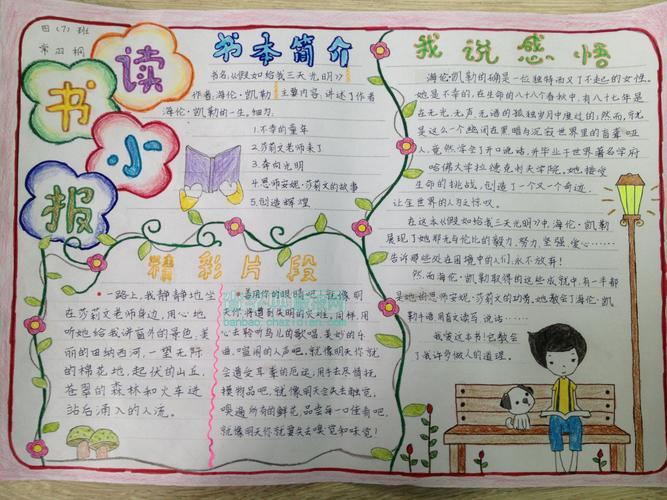 四(7)班
常羽桐
读书小报
书本简介
书名:《假如给我三天光明》
作者:海伦·凯勒 主要内容:讲述了作者
海伦·凯勒的一生。细为:
1.不幸的童年
2.莎莉文老师来了
3.奔向光明
4.恩师安妮·莎莉文的故事
5.创造辉煌
精彩片段
一路上,我静静地坐
在莎莉文老师身边,用心地
听她给我讲窗外的景色,美
丽的田纳西河,一望无际
的棉花地,起伏的山丘,
苍翠的森林和火车进
站后涌入的人流。
善用你的眼睛吧!就像明
天你将遭到失明的灾难。同样,用
心去聆听鸟儿的歌唱、美妙的乐
曲、喧闹的人声吧,就像明天你就
会遭受耳聋的厄运。用手去尽情抚
摸物品吧,就像明天会失去触觉。
嗅遍所有的鲜花,品尝每一口佳肴吧,
就像明天你就要失去嗅觉和味觉!
我说感悟
海伦·凯勒的确是一位独特而又了不起的女性。
她是不幸的,在生命的八十八个春秋中,有八十七年是
在无光、无声、无语的孤独岁月中度过的;然而,
是这么一个幽闭在黑暗与沉寂世界里的盲聋哑
人,竟然学会了开口说话,并毕业于世界著名学府
哈佛大学拉德克利夫学院。她接受
生命的挑战,创造了一个又一个奇迹,
让全世界的人为之惊叹。
在这本《假如给我三天光明》中,海伦·凯勒
展现了她那无与伦比的毅力、努力、坚强、爱心……
告诉那些处在困境中的人们,永不放弃!
然而海伦·凯勒取得的这些成就中,有一半都
是她的恩师安妮·莎莉文的功劳,她教会了海伦·凯
勒手语,用盲文读写、说话……
我爱这本书!它教会
了我许多做人的道理。
banbao.chazidian.com